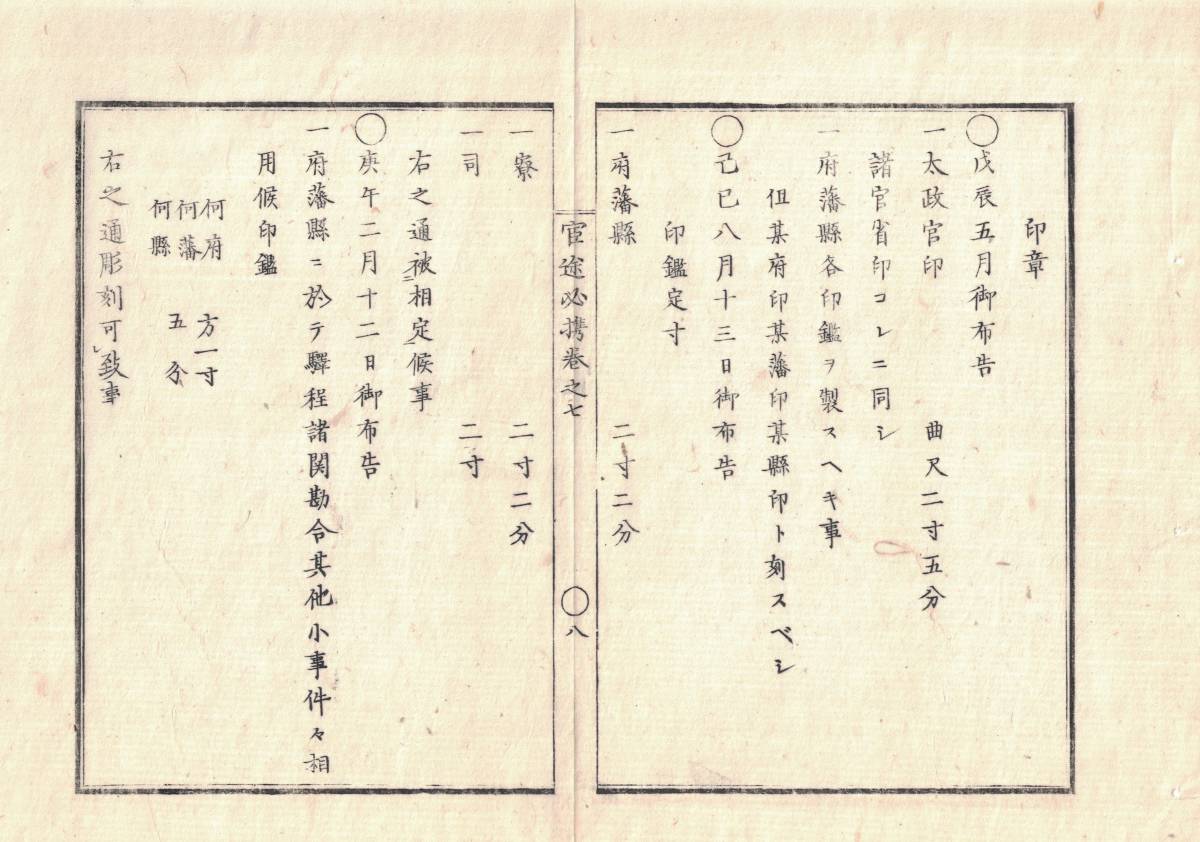 印章
◯戊辰五月御布告
一太政官印 曲尺二寸五分
諸官省印コレニ同シ
一府藩縣各印鑑ヲ製スヘキ事
但某府印某藩印某縣印ト刻スベシ
◯己巳八月十三日御布告
印鑑定寸
一府藩縣 二寸二分
官途必携巻之七 ◯八
一寮 二寸二分
一司 二寸
右之通被二相定一候事
◯庚午二月十二日御布告
一府藩縣ニ於テ驛程諸関勘合其他小事件々相
用候印鑑
何府 方一寸
何藩 五分
何縣
右之通彫刻可レ致事